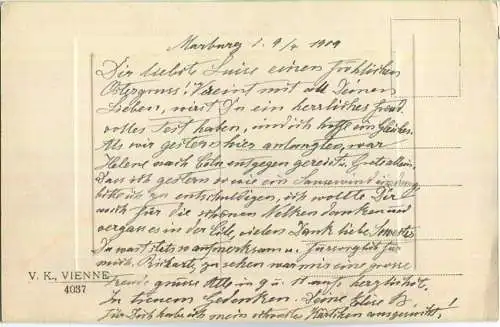 Marburg 1. 9/4 1909
Dir liebste Luise einen fröhlichen
Ostergruss! Vereint mit all Deinen
Lieben, wirst Du ein herrliches freud
volles Fest haben, und ich hoffe ein Gleiches.
Als wir gestern hier anlangten, war
Helene nach Cöln entgegen gereist.
Dass ich gestern so wie ein Sausewind
bitte ich zu entschuldigen, ich wollte Dir
noch für die schönen Nelken danken und
vergass es in der Eile, vielen Dank liebe
Du warst stets so aufmerksam u. fürsorglich für
mich. zu sehen war mir eine grosse
Freude, grüsse Alle in u. st auf's herzlichste.
In treuem Gedenken. Deine Elise B.
Für Dich habe ich mein schönstes Kärtchen ausgesucht!
V. K., VIENNE
4037